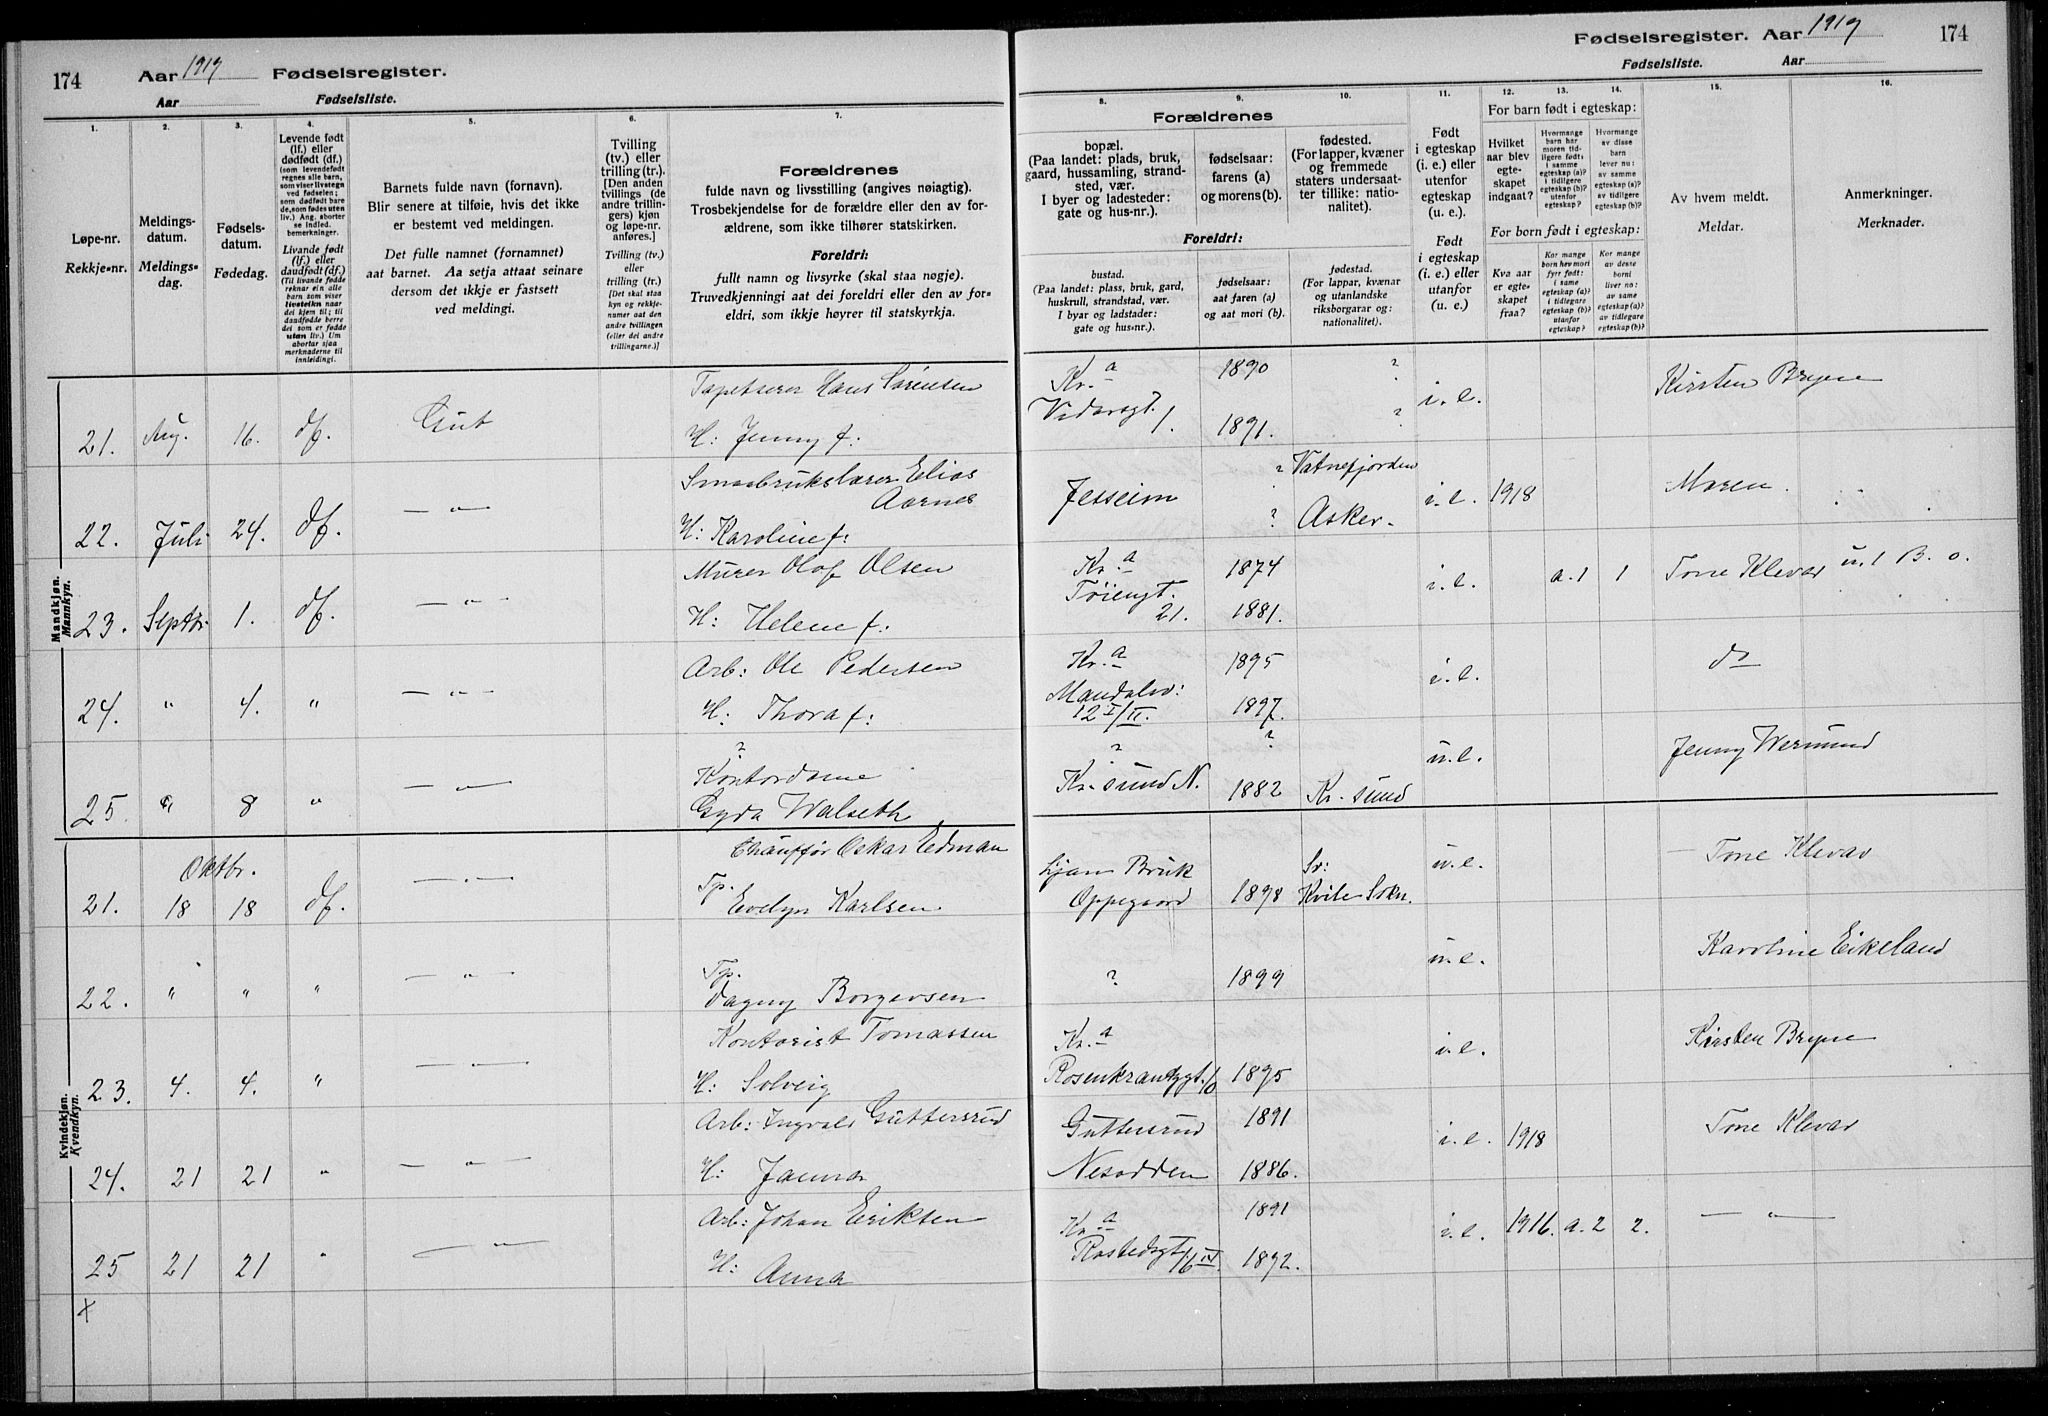 174 Aar 1919 Fødselsregister.
Aar Fødselsliste.
1. 2. 3. 4. 5. 6. 7.
Løpe-nr.
Rekkje-nr.
Meldings-
datum.
Meldings-
dag.
Fødsels-
datum.
Fødedag.
Levende født
(lf.) eller
dødfødt (df.)
(som levendefødt
regnes alle barn,
som viser livstegn
ved fødselen;
som dødfødt bare
de, som fødes uten
liv.) Ang. aborter
se indled.
bemerkninger.
Livande født
(lf.) eller
daudfødt (df.)
(Til livande fødde
reknar ein alle
barn som viser
livsteikn naar
dei kjem til; til
daudfødde berre
dei som er fødde
utan liv.) Um
abortar sjaa
merknaderne til
innleidingi.
Barnets fulde navn (fornavn).
Blir senere at tilføie, hvis det ikke
er bestemt ved meldingen.
Det fulle namnet (fornamnet)
aat barnet. Aa setja attaat seinare
dersom det ikkje er fastsett
ved meldingi.
Tvilling
(tv.) eller
trilling (tr.).
[Den anden
tvillings (de
andre trillin-
gers) kjøn
og løpe-nr.
anføres.]
Tvilling (tv.)
eller
trilling (tr.)
[Det skal staa
kyn og rekkje-
numer aat den
andre tvillingen
(eller dei andre
trillingarne.)]
Forældrenes
fulde navn og livsstilling (angives nøiagtig).
Trosbekjendelse for de forældre eller den av for-
ældrene, som ikke tilhører statskirken.
Foreldri:
fullt namn og livsyrke (skal staa nøgje).
Truvedkjenningi aat dei foreldri eller den av for-
eldri, som ikkje høyrer til statskyrkja.
Mandkjøn.
Mannkyn.
21. Aug. 16. df. Gut
Tapetserer Hans Sørensen
H: Jenny f:
22. Juli 24. df. — " —
Smaabrukslærer Elias
Aarnes
H: Karoline f:
23. Septbr 1. df. — " —
Murer Olof Olsen
H: Helene f:
24. " 4. " — " —
Arb: Ole Pedersen
H: Thora f:
25. " 8 " — " —
?
Kontordame
Gyda Walseth
Kvindekjøn.
Kvendkyn.
Oktbr.
21. 18 18 df. — " —
Chauffør Oskar Edman
Tp.
Evelyn Karlsen
22. " " " — " —
Tp.
Dagny Borgersen
23. 4. 4. " — " —
Kontorist Tomassen
H: Solveig
24. 21 21 " — " —
Arb: Ingvald Guttersrud
H: Janna
25 21 21 " — " —
Arb: Johan Eriksen
H: Anna
x
Fødselsregister. Aar 1919 174
Fødselsliste. Aar
8. 9. 10. 11. 12. 13. 14. 15. 16.
Forældrenes
bopæl.
(Paa landet: plads, bruk,
gaard, hussamling, strand-
sted, vær.
I byer og ladesteder:
gate og hus-nr.).
fødselsaar:
farens (a)
og morens (b).
fødested.
(For lapper, kvæner
og fremmede
staters undersaat-
ter tillike: natio-
nalitet).
Foreldri:
bustad.
(Paa landet: plass, bruk, gard,
huskrull, strandstad, vær.
I byar og ladstader:
gate og hus-nr.).
fødselsaar:
aat faren (a)
og aat mori (b).
fødestad.
(For lappar, kvænar
og utanlandske
riksborgarar og:
nationalitet).
Født
i egteskap
(i. e.) eller
utenfor
egteskap
(u. e.).
Født
i egteskap
(i. e.) eller
utanfor
(u. e.)
For barn født i egteskap:
Hvilket
aar blev
egte-
skapet
indgaat?
Hvormange
barn har
moren tid-
ligere født:
i samme
egteskap (a)?
i tidligere
egteskap (b)?
utenfor
egteskap?
Hvormange
av disse
barn
lever nu:
av samme
egteskap (a)?
av tidligere
egteskap (b)?
For born født i egteskap:
Kva aar
er egte-
skapet
fraa?
Kor mange
born hev mori
fyrr født:
i same
egteskap (a)?
i tidlegare
egteskap (b)?
utanfor
egteskap?
Kor mange
av desse
borni
liver no:
av same
egteskap (a)?
av tidlegare
egteskap (b)?
Av hvem meldt.
Meldar.
Anmerkninger.
Merknader.
Kr.a 1890 ? i. e. Kirsten Bryne
Vidarsgt. 1. 1891. ?
Jesseim ? Vatnefjorden i. e. 1918 Maren
? Asker.
Kr.a 1874 i. e. a. 1 1 Tone Klevar u. 1 B. o.
Tøiengt.
21. 1881.
Kr.a 1895 i. e. do
Mandalsv:
12 I/II. 1897.
? ? u. e. Jenny Wermund
Kr. sund N. 1882 Kr. sund
Ljan Bruk Sv: u. e. — Tone Klevar
Oppegaard 1898 Kvile Sokn.
? 1899 u. e. Karoline Eikeland
Kr.a i. e. Kirsten Bryne
Rosenkrantzgt. 10 1895
Guttersrud 1891 i. e. 1918 Tone Klevar
Nesodden 1886.
Kr.a 1891 i. e. 1916. a. 2 2. — " —
Rostedsgt. 16 IV 1892.